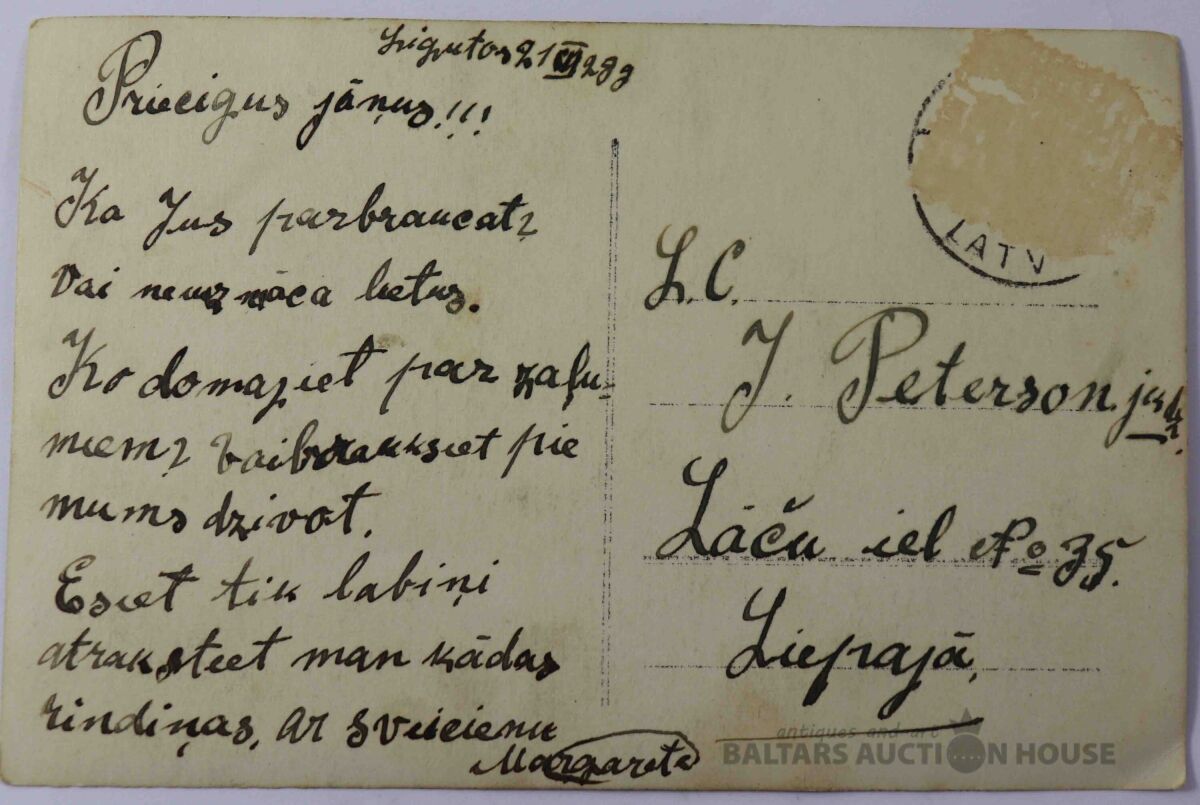 Ligutos 21 VI 28 g
Priecigus jāņus!!!
Ka Jus parbraucat?
Vai neuznāca lietus.
Ko domajiet par zaļu-
miem? Vai brauksiet pie
mums dzivot.
Esiet tik labiņi
atraksteet man kādas
rindiņas, ar sveicienu
Margareta
LATV
L. C.
J. Peterson
Lāču iel No 35.
Liepajā,
antiques and art
BALTARS AUCTION HOUSE